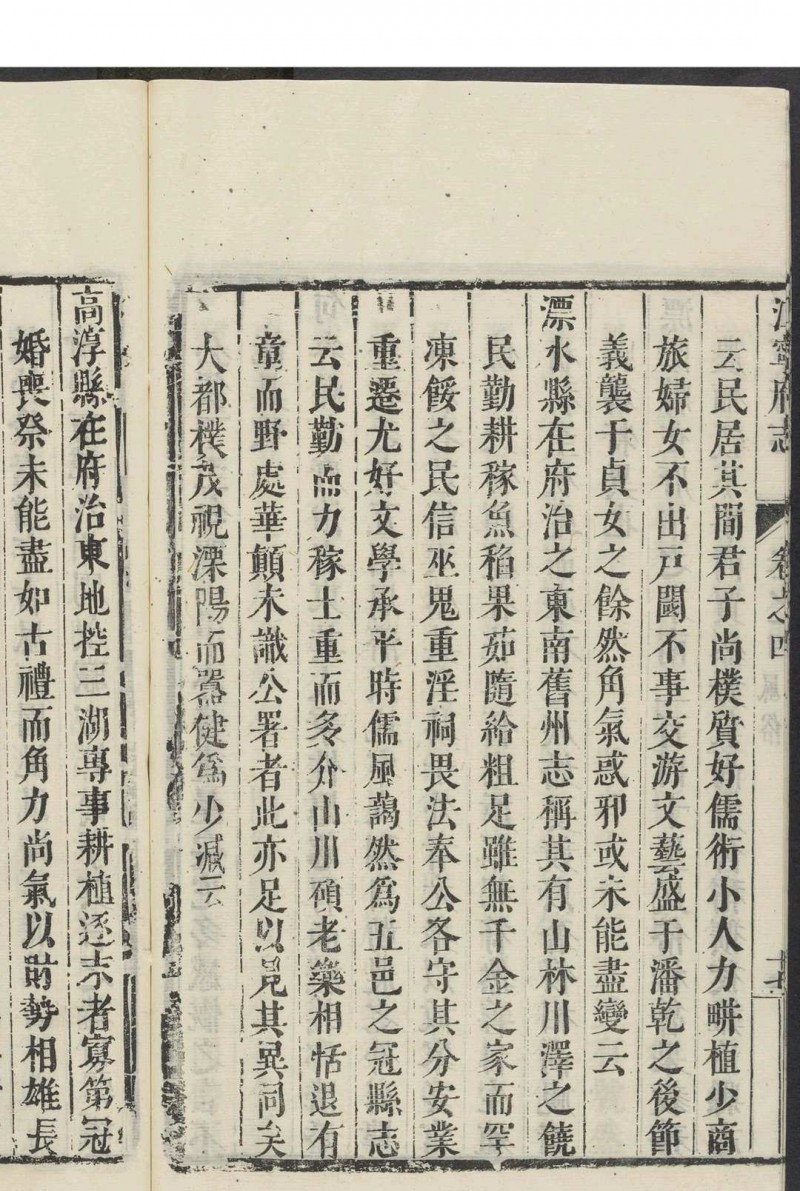 江寧府志 卷之四 風俗 十七
云民居其間君子尚樸質好儒術小人力畊植少商
旅婦女不出戸閾不事交游文藝盛于潘乾之後節
義襲于貞女之餘然角氣惑邪或未能盡變云
漂水縣在府治之東南舊州志稱其有山林川澤之饒
民勤耕稼魚稻果茹隨給粗足雖無千金之家而罕
凍餒之民信巫鬼重淫祠畏法奉公各守其分安業
重遷尤好文學承平時儒風藹然為五邑之冠縣志
云民勤而力稼士重而多介山川碩老藥相恬退有
章而野處華顛未識公署者此亦足以見其異同矣
大都樸茂視溧陽而嚚健為少減云
高淳縣在府治東地控三湖專事耕植逐末者寡第冠
婚喪祭未能盡如古禮而角力尚氣以財勢相雄長